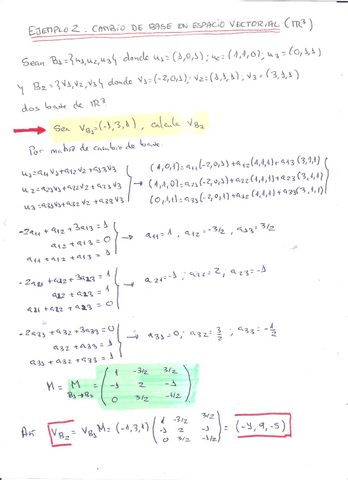 EJEMPLO 2: CAMBIO DE BASE EN ESPACIO VECTORIAL (IR³)
Sean B₁={u₁,u₂,u₃} donde u₁=(1,0,1); u₂=(1,1,0); u₃=(0,1,1)
y B₂={v₁,v₂,v₃} donde v₁=(-2,0,1); v₂=(1,1,1), v₃=(3,1,1)
dos base de IR³
Sea V_B₁=(-1,3,1), calcula V_B₂
Por matriz de cambio de base.
u₁=a₁₁v₁+a₁₂v₂+a₁₃v₃ (1,0,1)=a₁₁(-2,0,1)+a₁₂(1,1,1)+a₁₃(3,1,1)
u₂=a₂₁v₁+a₂₂v₂+a₂₃v₃ → (1,1,0)=a₂₁(-2,0,1)+a₂₂(1,1,1)+a₂₃(3,1,1)
u₃=a₃₁v₁+a₃₂v₂+a₃₃v₃ (0,1,1)=a₃₁(-2,0,1)+a₃₂(1,1,1)+a₃₃(3,1,1)
-2a₁₁+a₁₂+3a₁₃=1
a₁₂+a₁₃=0 → a₁₁=1, a₁₂=-3/2, a₁₃=3/2
a₁₁+a₁₂+a₁₃=1
-2a₂₁+a₂₂+3a₂₃=1
a₂₂+a₂₃=1 → a₂₁=-1; a₂₂=2, a₂₃=-1
a₂₁+a₂₂+a₂₃=0
-2a₃₁+a₃₂+3a₃₃=0
a₃₂+a₃₃=1 → a₃₁=0; a₃₂=3/2; a₃₃=-1/2
a₃₁+a₃₂+a₃₃=1
1 -3/2 3/2
M = M = -1 2 -1
B₁→B₂ 0 3/2 -1/2
1 -3/2 3/2
Así V_B₂ = V_B₁M = (-1,3,1) -1 2 -1 = (-4, 9, -5)
0 3/2 -1/2